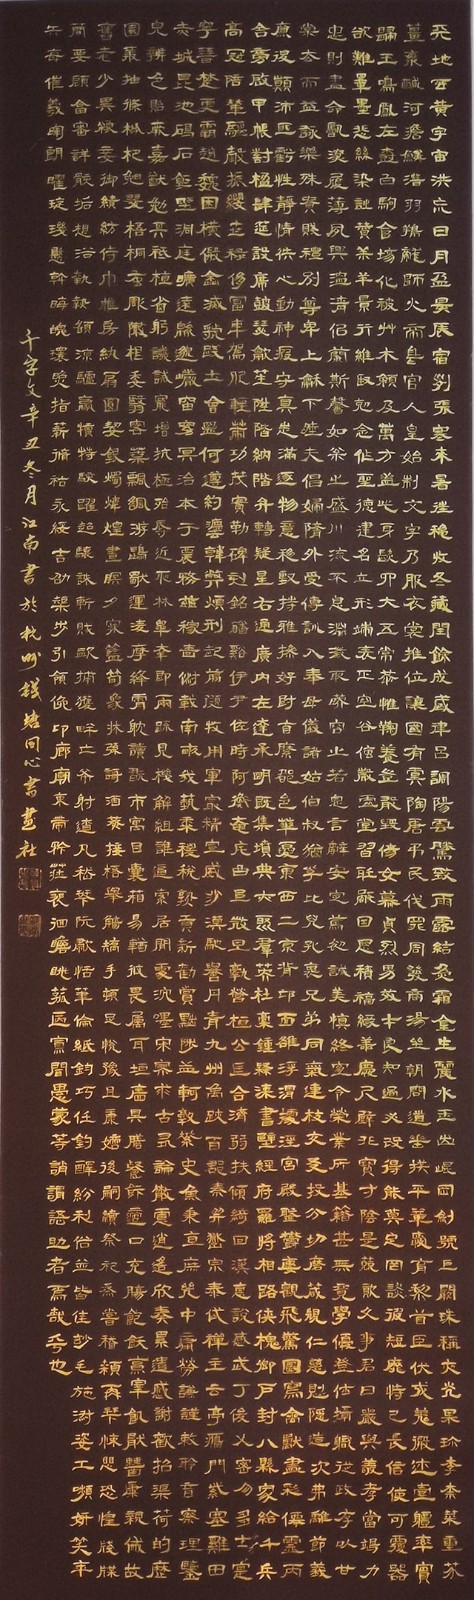 天地玄黃宇宙洪荒日月盈昃辰宿列張寒來暑往秋收冬藏閏餘成歲律呂調陽雲騰致雨露結為霜金生麗水玉出崑岡劍號巨闕珠稱夜光果珍李柰菜重芥
薑海鹹河淡鱗潛羽翔龍師火帝鳥官人皇始制文字乃服衣裳推位讓國有虞陶唐弔民伐罪周發商湯坐朝問道垂拱平章愛育黎首臣伏戎羌遐邇壹體率賓
歸王鳴鳳在樹白駒食場化被草木賴及萬方蓋此身髮四大五常恭惟鞠養豈敢毀傷女慕貞烈男效才良知過必改得能莫忘罔談彼短靡恃己長信使可覆器
欲難量墨悲絲染詩讚羔羊景行維賢剋念作聖德建名立形端表正空谷傳聲虛堂習聽禍因惡積福緣善慶尺璧非寶寸陰是競資父事君曰嚴與敬孝當竭力
忠則盡命臨深履薄夙興溫凊似蘭斯馨如松之盛川流不息淵澄取映容止若思言辭安定篤初誠美慎終宜令榮業所基籍甚無竟學優登仕攝職從政存以甘
棠去而益詠樂殊貴賤禮別尊卑上和下睦夫唱婦隨外受傅訓入奉母儀諸姑伯叔猶子比兒孔懷兄弟同氣連枝交友投分切磨箴規仁慈隱惻造次弗離節義
廉退顛沛匪虧性靜情逸心動神疲守真志滿逐物意移堅持雅操好爵自縻都邑華夏東西二京背邙面洛浮渭據涇宮殿盤鬱樓觀飛驚圖寫禽獸畫彩仙靈丙
舍旁啟甲帳對楹肆筵設席鼓瑟吹笙陞階納陛弁轉疑星右通廣內左達承明既集墳典亦聚群英杜稿鍾隸漆書壁經府羅將相路俠槐卿戶封八縣家給千兵
高冠陪輦驅轂振纓世祿侈富車駕肥輕策功茂實勒碑刻銘磻溪伊尹佐時阿衡奄宅曲阜微旦孰營桓公匡合濟弱扶傾綺回漢惠說感武丁俊乂密勿多士寔
寧晉楚更霸趙魏困橫假途滅虢踐土會盟何遵約法韓弊煩刑起翦頗牧用軍最精宣威沙漠馳譽丹青九州禹跡百郡秦并嶽宗泰岱禪主云亭雁門紫塞雞田
赤城昆池碣石鉅野洞庭曠遠綿邈巖岫杳冥治本於農務茲稼穡俶載南畝我藝黍稷稅熟貢新勸賞黜陟孟軻敦素史魚秉直庶幾中庸勞謙謹敕聆音察理鑒
貌辨色貽厥嘉猷勉其祗植省躬譏誡寵增抗極殆辱近恥林皋幸即兩疏見機解組誰逼索居閒處沉默寂寥求古尋論散慮逍遙欣奏累遣慼謝歡招渠荷的歷
園莽抽條枇杷晚翠梧桐蚤凋陳根委翳落葉飄颻游鵾獨運凌摩絳霄耽讀翫市寓目囊箱易輶攸畏屬耳垣牆具膳餐飯適口充腸飽飫烹宰飢厭糟糠親戚故
舊老少異糧妾御績紡侍巾帷房紈扇圓絜銀燭煒煌晝眠夕寐藍筍象床弦歌酒宴接杯舉觴矯手頓足悅豫且康嫡後嗣續祭祀烝嘗稽顙再拜悚懼恐惶牋牒
簡要顧答審詳骸垢想浴執熱願涼驢騾犢特駭躍超驤誅斬賊盜捕獲叛亡布射遼丸嵇琴阮嘯恬筆倫紙鈞巧任釣釋紛利俗並皆佳妙毛施淑姿工顰妍笑年
矢每催羲暉朗曜璇璣懸斡晦魄環照指薪修祜永綏吉劭矩步引領俯仰廊廟束帶矜莊徘徊瞻眺孤陋寡聞愚蒙等誚謂語助者焉哉乎也
千字文辛丑冬月江南書於杭州錢塘同心書畫社